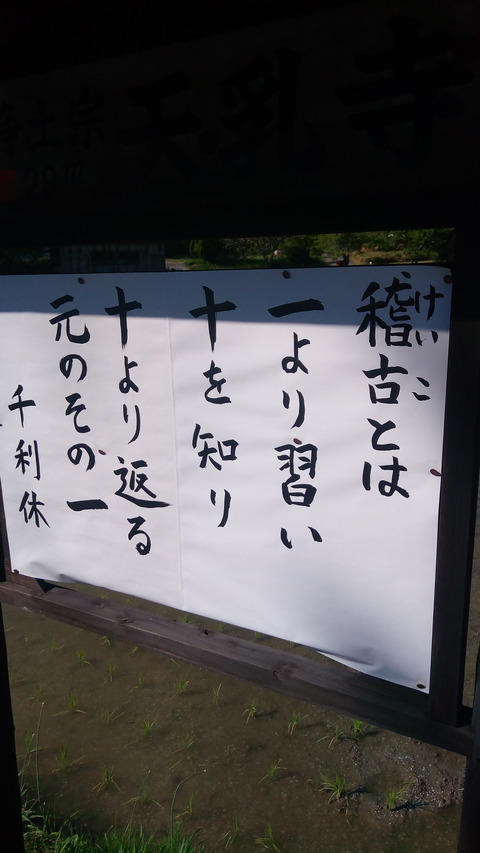 浄土宗 天乳寺
稽古とは
けいこ
一より習い
十を知り
十より返る
元のその一
千利休